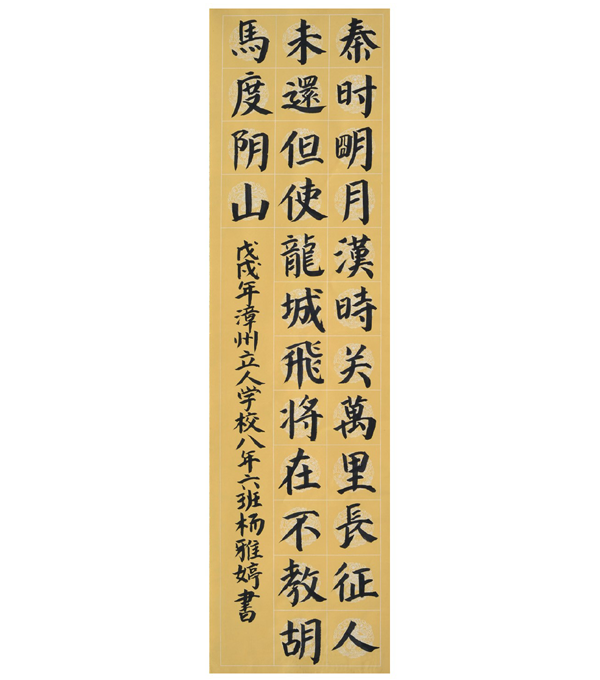 秦时明月漢時关萬里長征人
未還但使龍城飛将在不教胡
馬度阴山
戊戌年漳州立人学校八年六班杨雅婷書